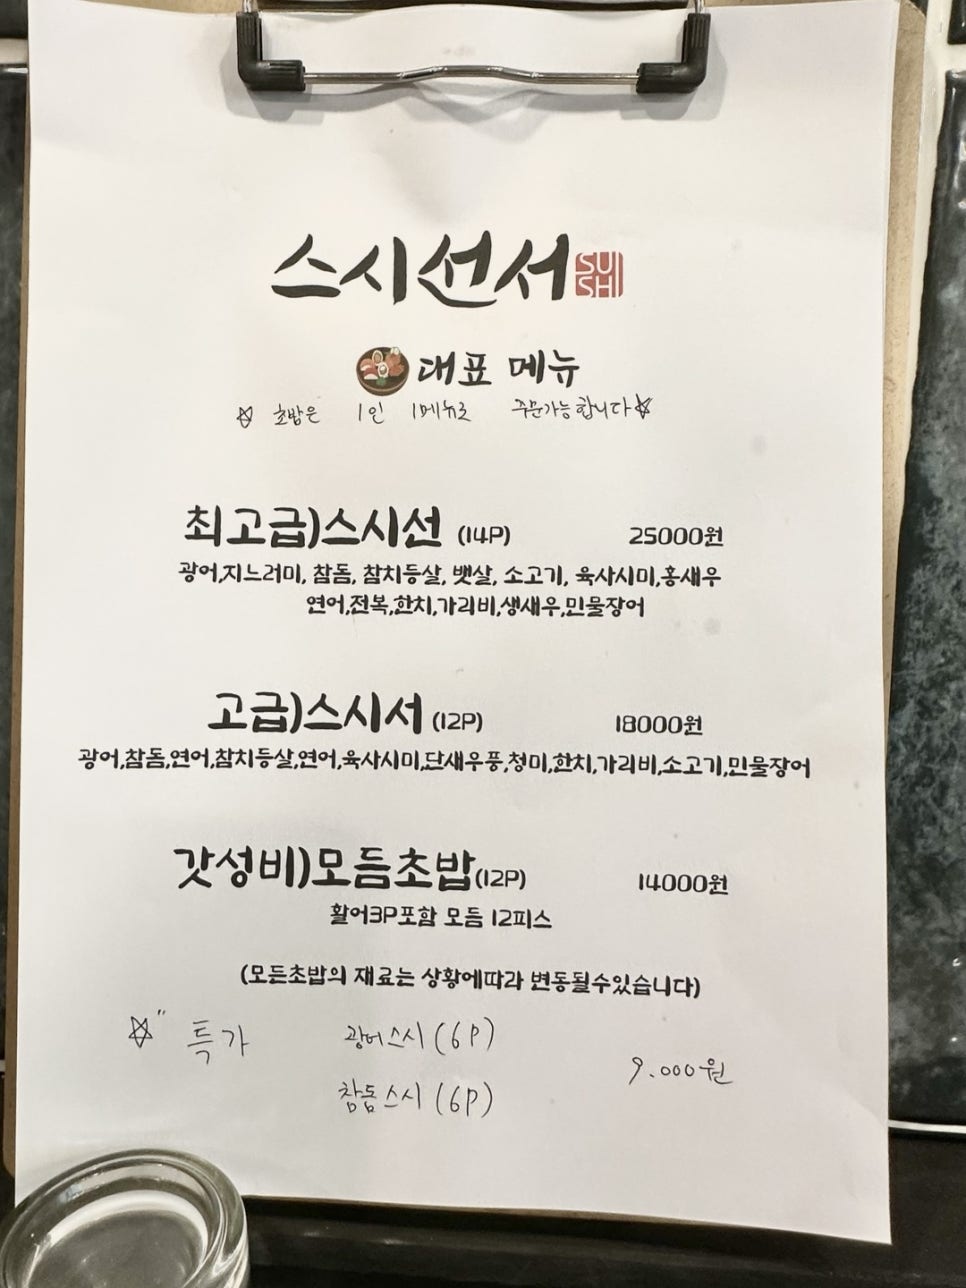 스시선서 SUSHI
대표 메뉴
☆ 초밥은 1인 1메뉴로 주문가능합니다☆
최고급)스시선 (14P) 25000원
광어,지느러미, 참돔, 참치등살, 뱃살, 소고기, 육사시미,홍새우
연어,전복,한치,가리비,생새우,민물장어
고급)스시서 (12P) 18000원
광어,참돔,연어,참치등살,연어,육사시미,단새우풍,청미,한치,가리비,소고기,민물장어
갓성비)모듬초밥(12P) 14000원
활어3P포함 모듬 12피스
(모든초밥의 재료는 상황에따라 변동될수있습니다)
☆" 특가 광어스시(6P)
9.000원
참돔스시(6P)